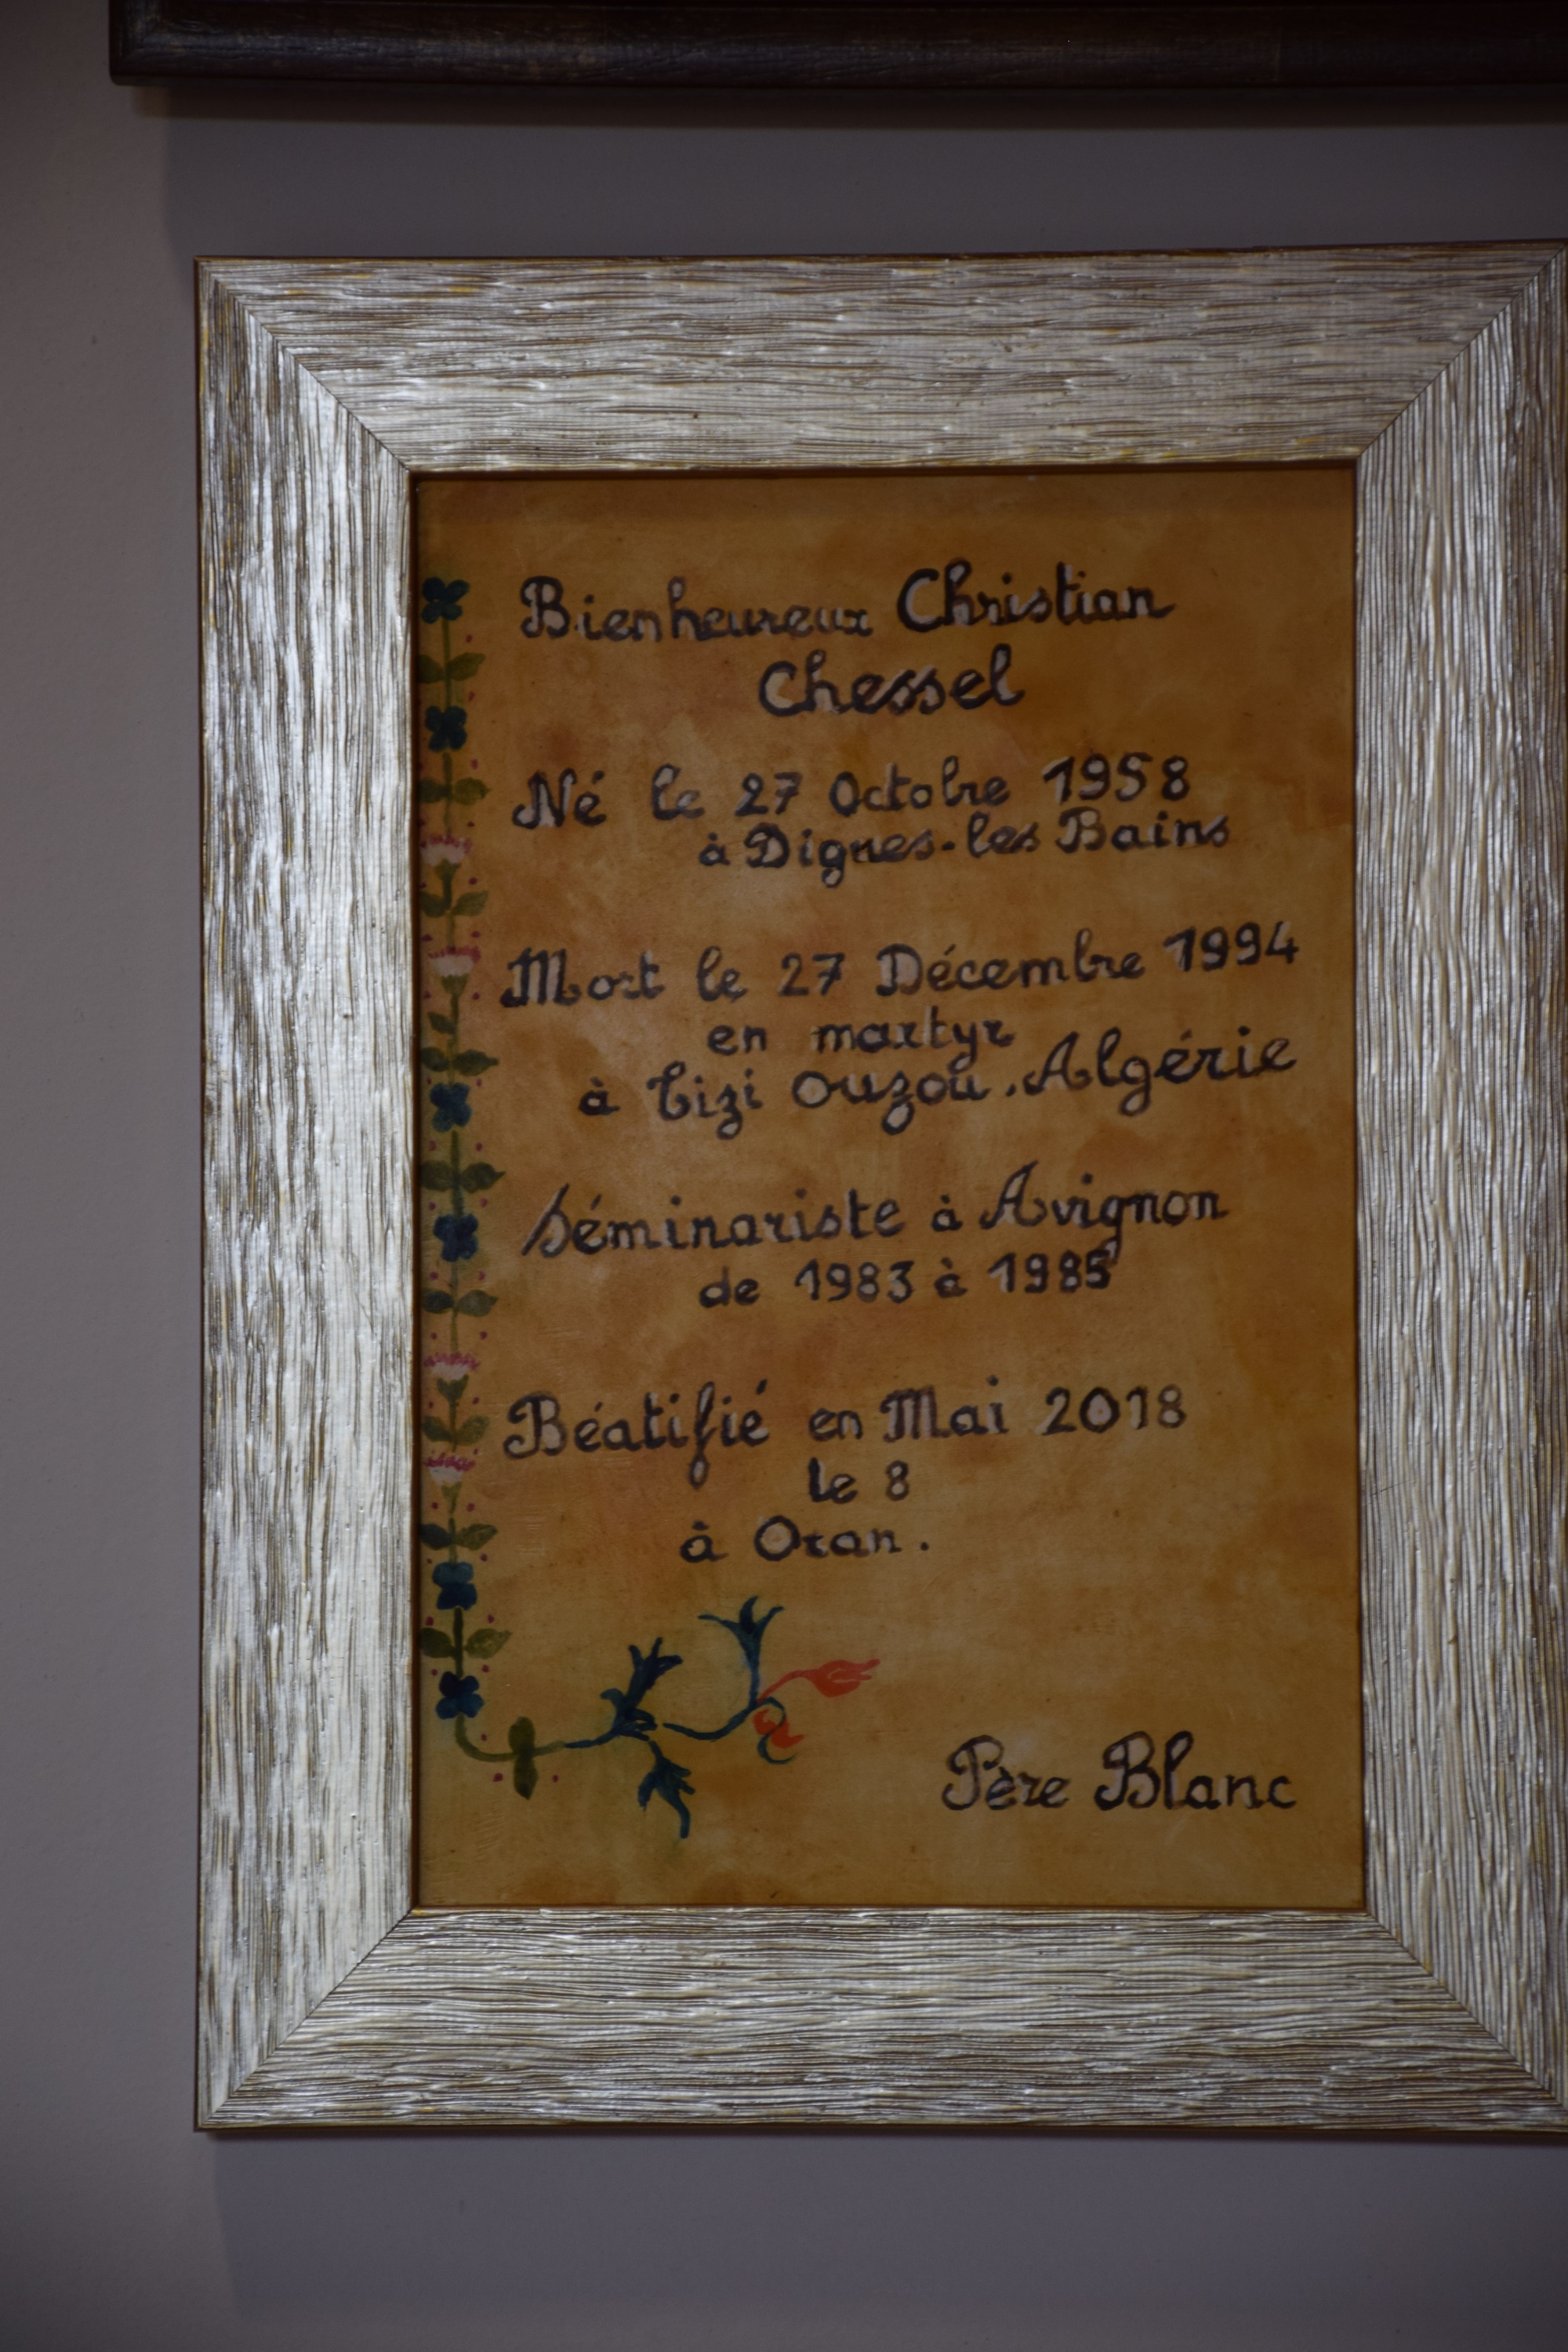 Bienheureux Christian
Chessel
Né le 27 Octobre 1958
à Dignes-les Bains
Mort le 27 Décembre 1994
en martyr
à Tizi Ouzou. Algérie
Séminariste à Avignon
de 1983 à 1985
Béatifié en Mai 2018
le 8
à Oran.
Père Blanc